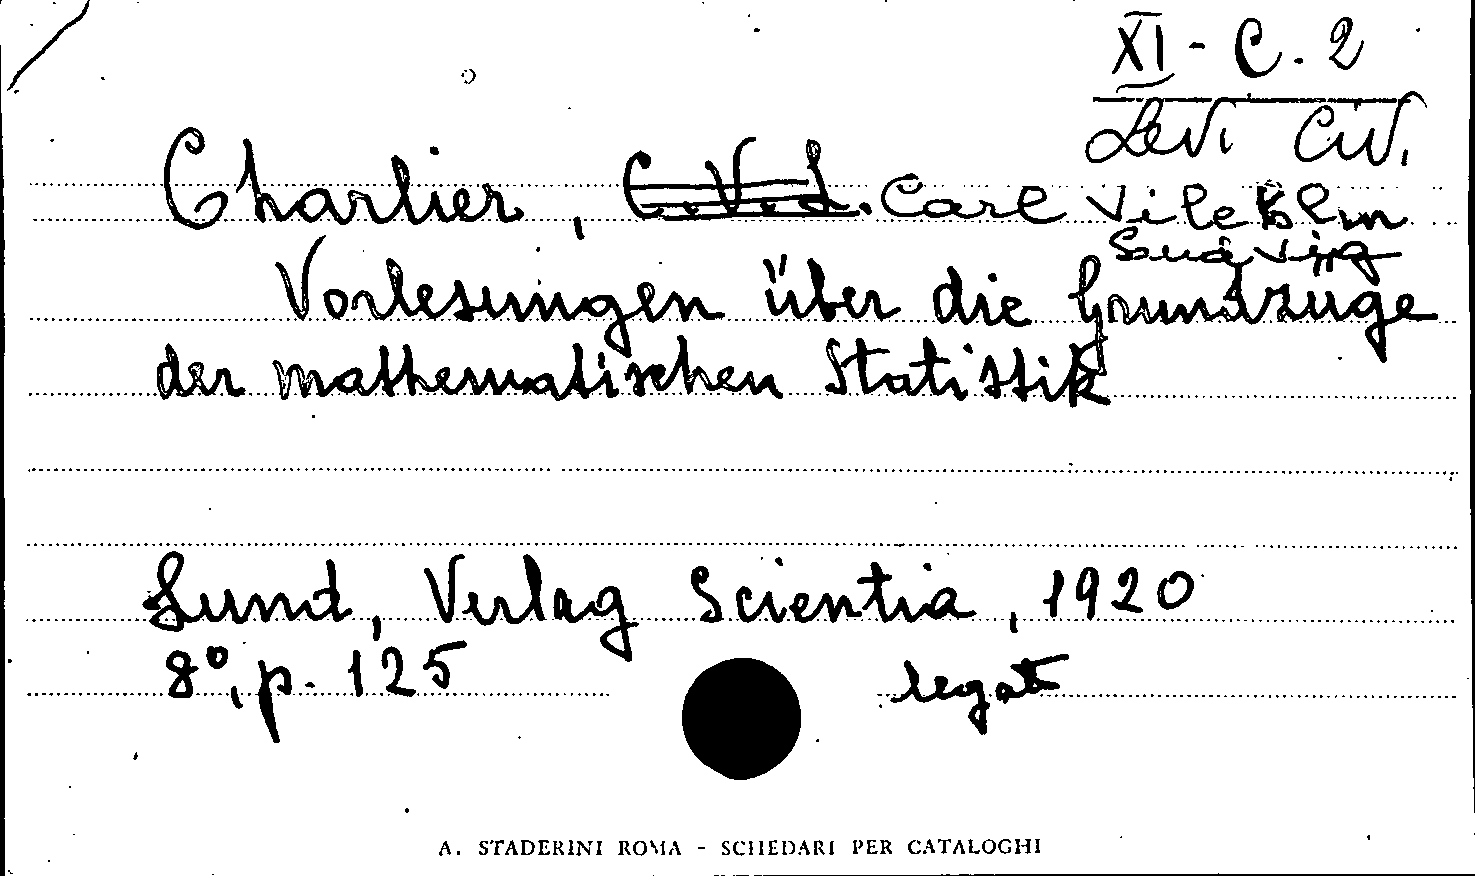 XI - C. 2
Levi Civ.
Charlier, C. V. L. Carl Vilehlm
Ludvig
Vorlesungen über die Grundzuge
der mathematischen Statistik
Lund, Verlag Scientia, 1920
8°, p. 125 legat
A. STADERINI ROMA - SCHEDARI PER CATALOGHI